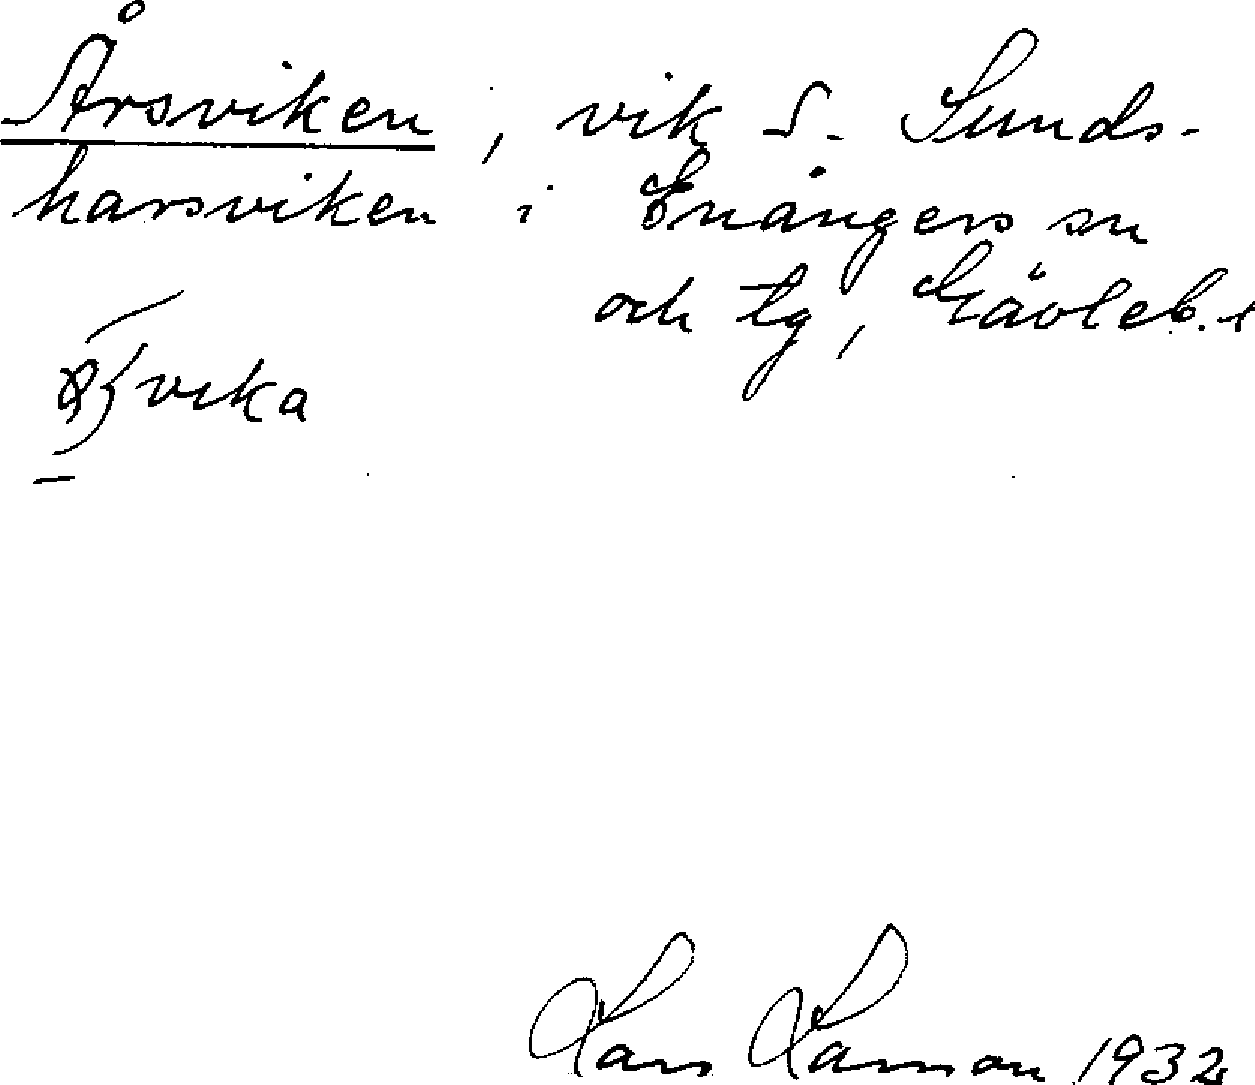 Årsviken, vik S. Sunds-
harsviken i Enångers sn
och tg, Gävleb. l
vika
Lars Larsson 1932